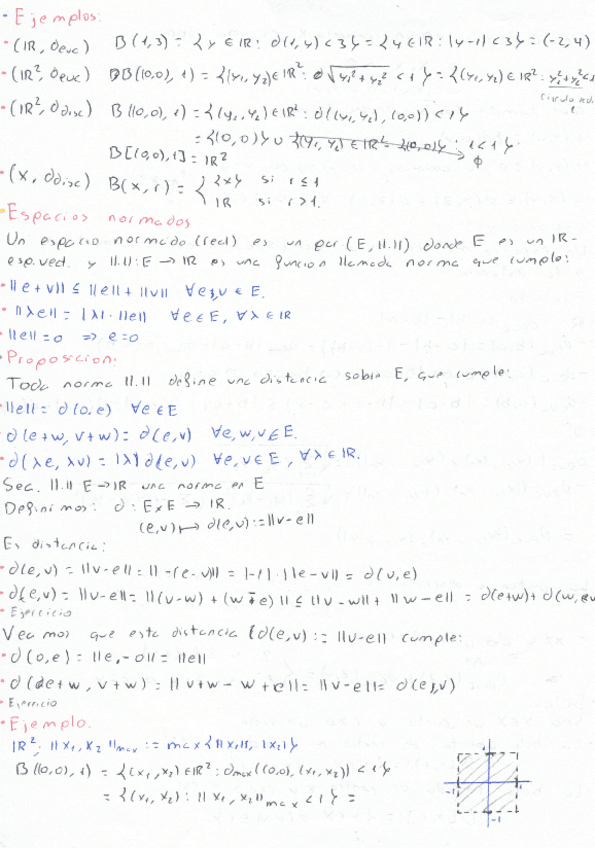 - Ejemplos:
· (IR, deuc) B(1,3) = {y ∈ IR: d(1,y) < 3} = {y ∈ IR: |y-1| < 3} = (-2,4)
· (IR², deuc) B((0,0), 1) = {(y₁,y₂) ∈ IR²: √y₁²+y₂² < 1} = {(y₁,y₂) ∈ IR²: y₁²+y₂² < 1
· (IR², ddisc) B((0,0), 1) = {(y₁,y₂) ∈ IR²: d((y₁,y₂), (0,0)) < 1}
= {(0,0)} ∪ {(y₁,y₂) ∈ IR² - {(0,0)}: 1 < 1}.
B[(0,0),1] = IR² ϕ
· (X, ddisc) B(x,r) = { {x} si r ≤ 1
IR si r > 1.
- Espacios normados
Un espacio normado (real) es un par (E, ||.||) donde E es un IR-
esp.vect. y ||.||: E → IR es una funcion llamada norma que cumple:
· ||e+v|| ≤ ||e|| + ||v|| ∀e,v ∈ E.
· ||λe|| = |λ| · ||e|| ∀e ∈ E, ∀λ ∈ IR
· ||e|| = 0 => e = 0
· Proposicion:
Toda norma ||.|| define una distancia sobre E, que cumple:
· ||e|| = d(0,e) ∀e ∈ E
· d(e+w, v+w) = d(e,v) ∀e,w,v ∈ E.
· d(λe, λv) = |λ| d(e,v) ∀e,v ∈ E, ∀λ ∈ IR.
Sea. ||.|| E → IR una norma en E
Definimos: d: E×E → IR.
(e,v) ↦ d(e,v) := ||v-e||
Es distancia:
· d(e,v) = ||v-e|| = || -(e-v)|| = |-1| · ||e-v|| = d(v,e)
· d(e,v) = ||v-e|| = ||(v-w) + (w-e)|| ≤ ||v-w|| + ||w-e|| = d(e+w) + d(w,
· Ejercicio
Veamos que esta distancia (d(e,v) := ||v-e|| cumple:
· d(0,e) = ||e,-0|| = ||e||
· d(e+w, v+w) = ||v+w-w+e|| = ||v-e|| = d(e,v)
· Ejercicio
· Ejemplo.
IR²; ||x₁,x₂||max := max{|x₁|, |x₂|}
B((0,0), 1) = {(x₁,x₂) ∈ IR²: dmax((0,0), (x₁,x₂)) < 1}
= {(x₁,x₂): ||x₁,x₂||max < 1} =
1
-1
1
-1